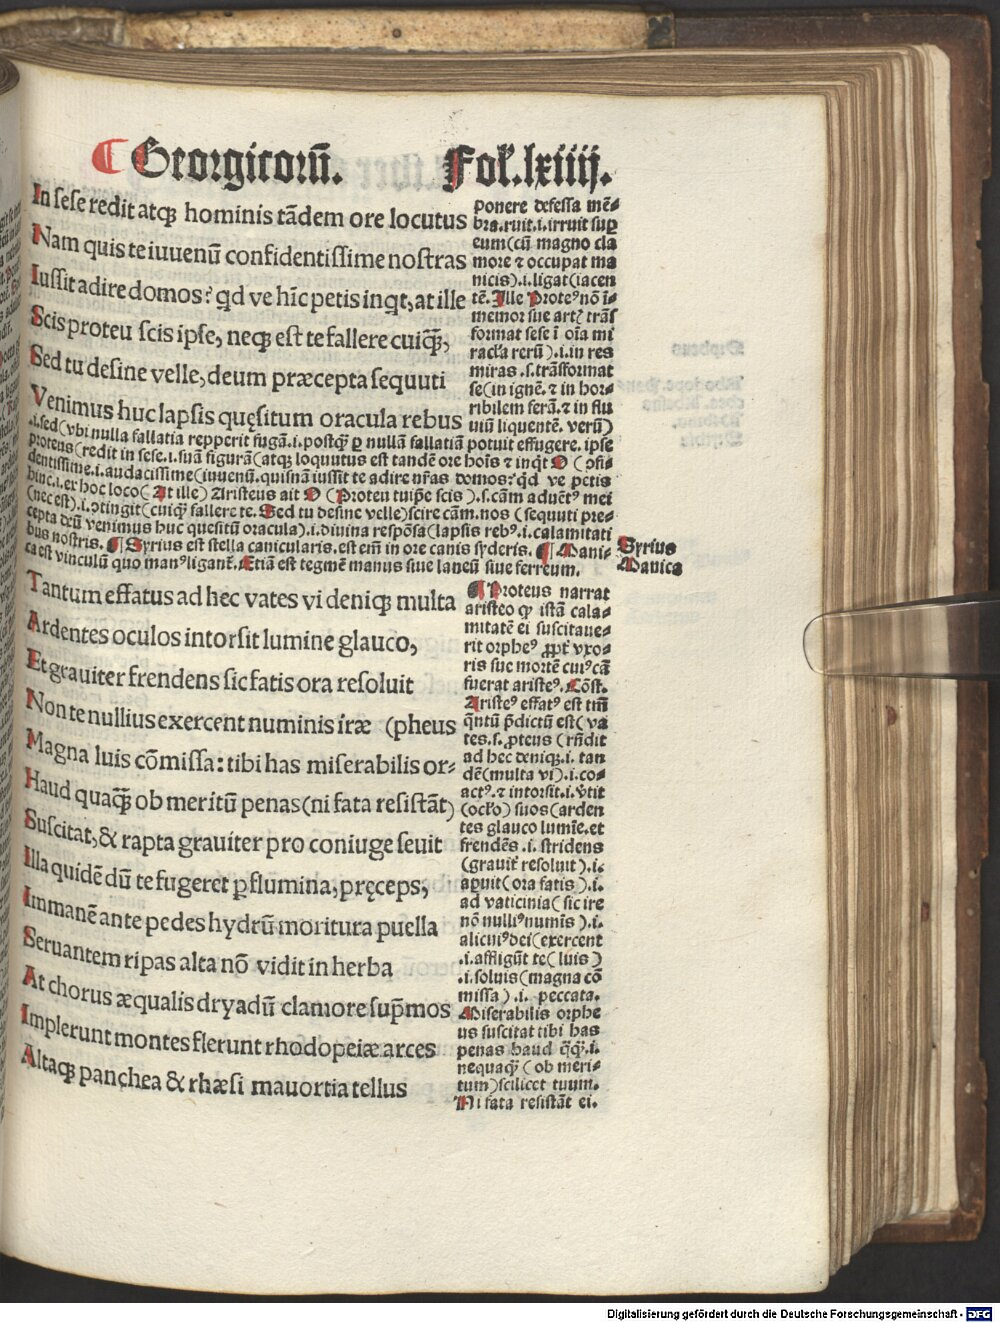 ¶ Georgicorū. Fol'.lxiiij.
In sese redit atqꝫ hominis tādem ore locutus
Nam quis te iuuenū confidentissime nostras
Iussit adire domos? qd ve hīc petis inqt, at ille
Scis proteu scis ipse, neqꝫ est te fallere cuiq̄ꝫ,
Sed tu desine velle, deum præcepta sequuti
Venimus huc lapsis quęsitum oracula rebus
ponere defessa mē-
bra.ruit.i.irruit suꝑ
eum(cū magno cla
more ⁊ occupat ma
nicis).i.ligat(iacen
tē. Ille Proteꝰ nō i-
memor sue art trās
format sese ī oīa mi
racl'a rerū).i.in res
miras.s.trāsformat
se(in ignē.⁊ in hor-
ribilem ferā.⁊ in flu
uiū liquentē. verū)
.i.sed(vbi nulla fallatia repperit fugā.i.postq̄ꝫ ꝑ nullā fallatiā potuit effugere. ipse
proteus(redit in sese.i.suā figurā(atqꝫ loquutus est tandē ore hoīs ⁊ inq̇t O (ↄfi-
dentissime.i.audacissime(iuuenū.quisnā iussit te adire nr̄as domos?qd ve petis
hinc.i.ex hoc loco( At ille) Aristeus ait O (Proteu tuip̄e scis).s.cām aduētꝰ mei
(nec est).i.ↄtingit(cuiq̄ꝫ fallere te. Sed tu desine velle)scire cām.nos (sequuti pre-
cepta deū venimus huc quesitū oracula).i.diuina respōsa(lapsis rebꝰ.i.calamitati
bus nostris. ¶ Syrius est stella canicularis.est eīn in ore canis syderis. ¶ Mani-
ca est vinculū quo manꝰligant. Etiā est tegmē manus siue laneū siue ferreum.
Syrius
Manica
Tantum effatus ad hec vates vi deniqꝫ multa
Ardentes oculos intorsit lumine glauco,
Et grauiter frendens sic fatis ora resoluit
Non te nullius exercent numinis iræ (pheus
Magna luis cōmissa: tibi has miserabilis or-
Haud quaq̄ꝫ ob meritū penas(ni fata resistāt)
Suscitat, & rapta grauiter pro coniuge seuit
Illa quidē dū te fugeret ꝑ flumina, pręceps,
Immanē ante pedes hydrū moritura puella
Seruantem ripas alta nō vidit in herba
At chorus æqualis dryadū clamore sup̄mos
Implerunt montes flerunt rhodopeiæ arces
Altaqꝫ panchea & rhæsi mauortia tellus
¶ Proteus narrat
aristeo qp istā cala-
mitatē ei suscitaue-
rit orpheꝰ ꝓpt vxo-
ris sue mortē cuiꝰcā
fuerat aristeꝰ. Cōst.
Aristeꝰ effatꝰ est tm̄
q̄ntū p̄dictū est( va
tes.s.ꝓteus (rn̄dit
ad hec deniqꝫ.i. tan
dē(multa vi).i.co-
actꝰ.⁊ intorsit.i.v̄tit
(ocl'o) suos(arden
tes glauco lumīe.et
frendēs.i. stridens
(grauit resoluit).i.
aꝑuit(ora fatis).i.
ad vaticinia( sic ire
nō nulliꝰnumīs).i.
alicuiꝰdei(exercent
.i.affligūt te( luis )
.i.soluis(magna cō
missa).i. peccata.
Miserabilis orphe
us suscitat tibi has
penas haud q̄q̄ꝫ.i.
nequaq̄ꝫ( ob meri-
tum)scilicet tuum.
Ni fata resistāt ei.
Digitalisierung gefördert durch die Deutsche Forschungsgemeinschaft - DFG